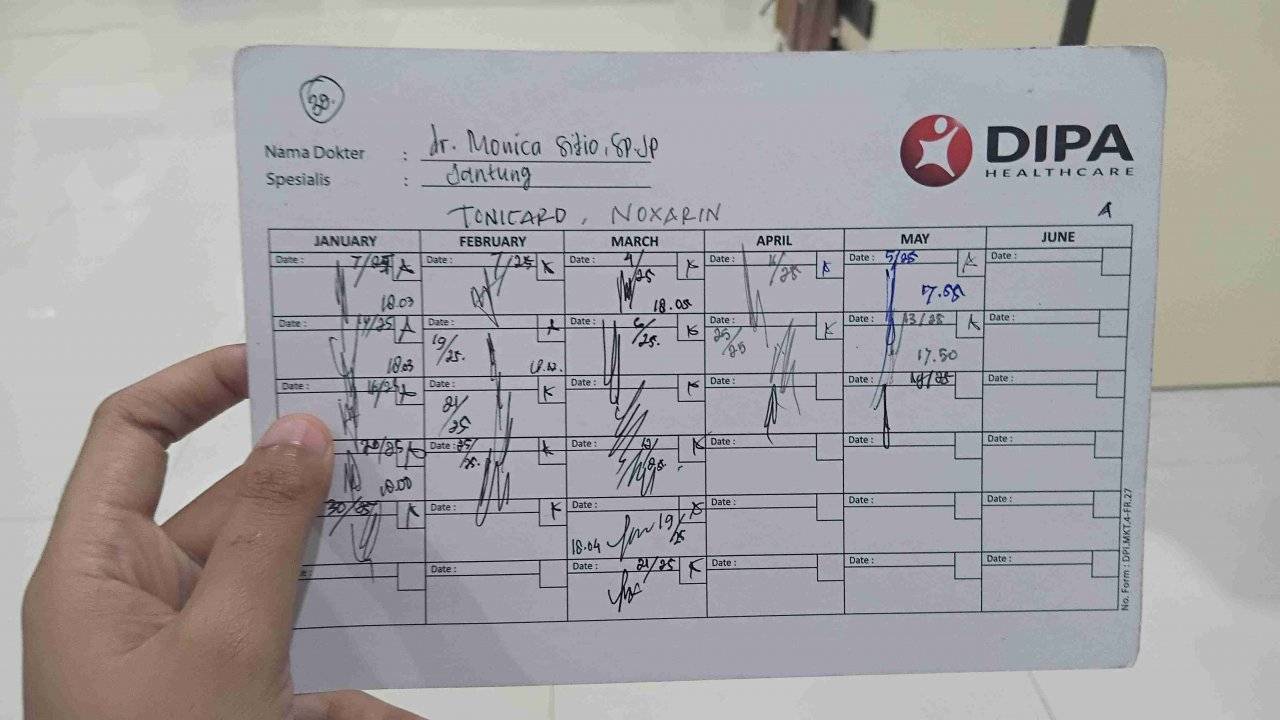 30.
DIPA
HEALTHCARE
Nama Dokter : dr. Monica Sitio, Sp.Jp
Spesialis : Jantung
TONICARD, NOXARIN
A
JANUARY FEBRUARY MARCH APRIL MAY JUNE
Date : 7/25 A Date : 7/25 K Date : 4/25 K Date : /25 K Date : 5/25 A Date :
18.03 18.05 17.55
Date : 14/25 A Date : 19/25. A Date : 6/25. K Date : 25/25 K Date : 13/25 A Date :
18.03 17.50
Date : 16/25 A Date : 21/25 K Date : K Date : Date : Date :
Date : 20/25 A Date : 25/25. A Date : K Date : Date : Date :
18.00
30/25 K Date : K Date : 19/25 K Date : Date : Date :
18.04
Date : Date : 21/25 K Date : Date : Date :
No. Form : DPI.MKT.4-FR.27